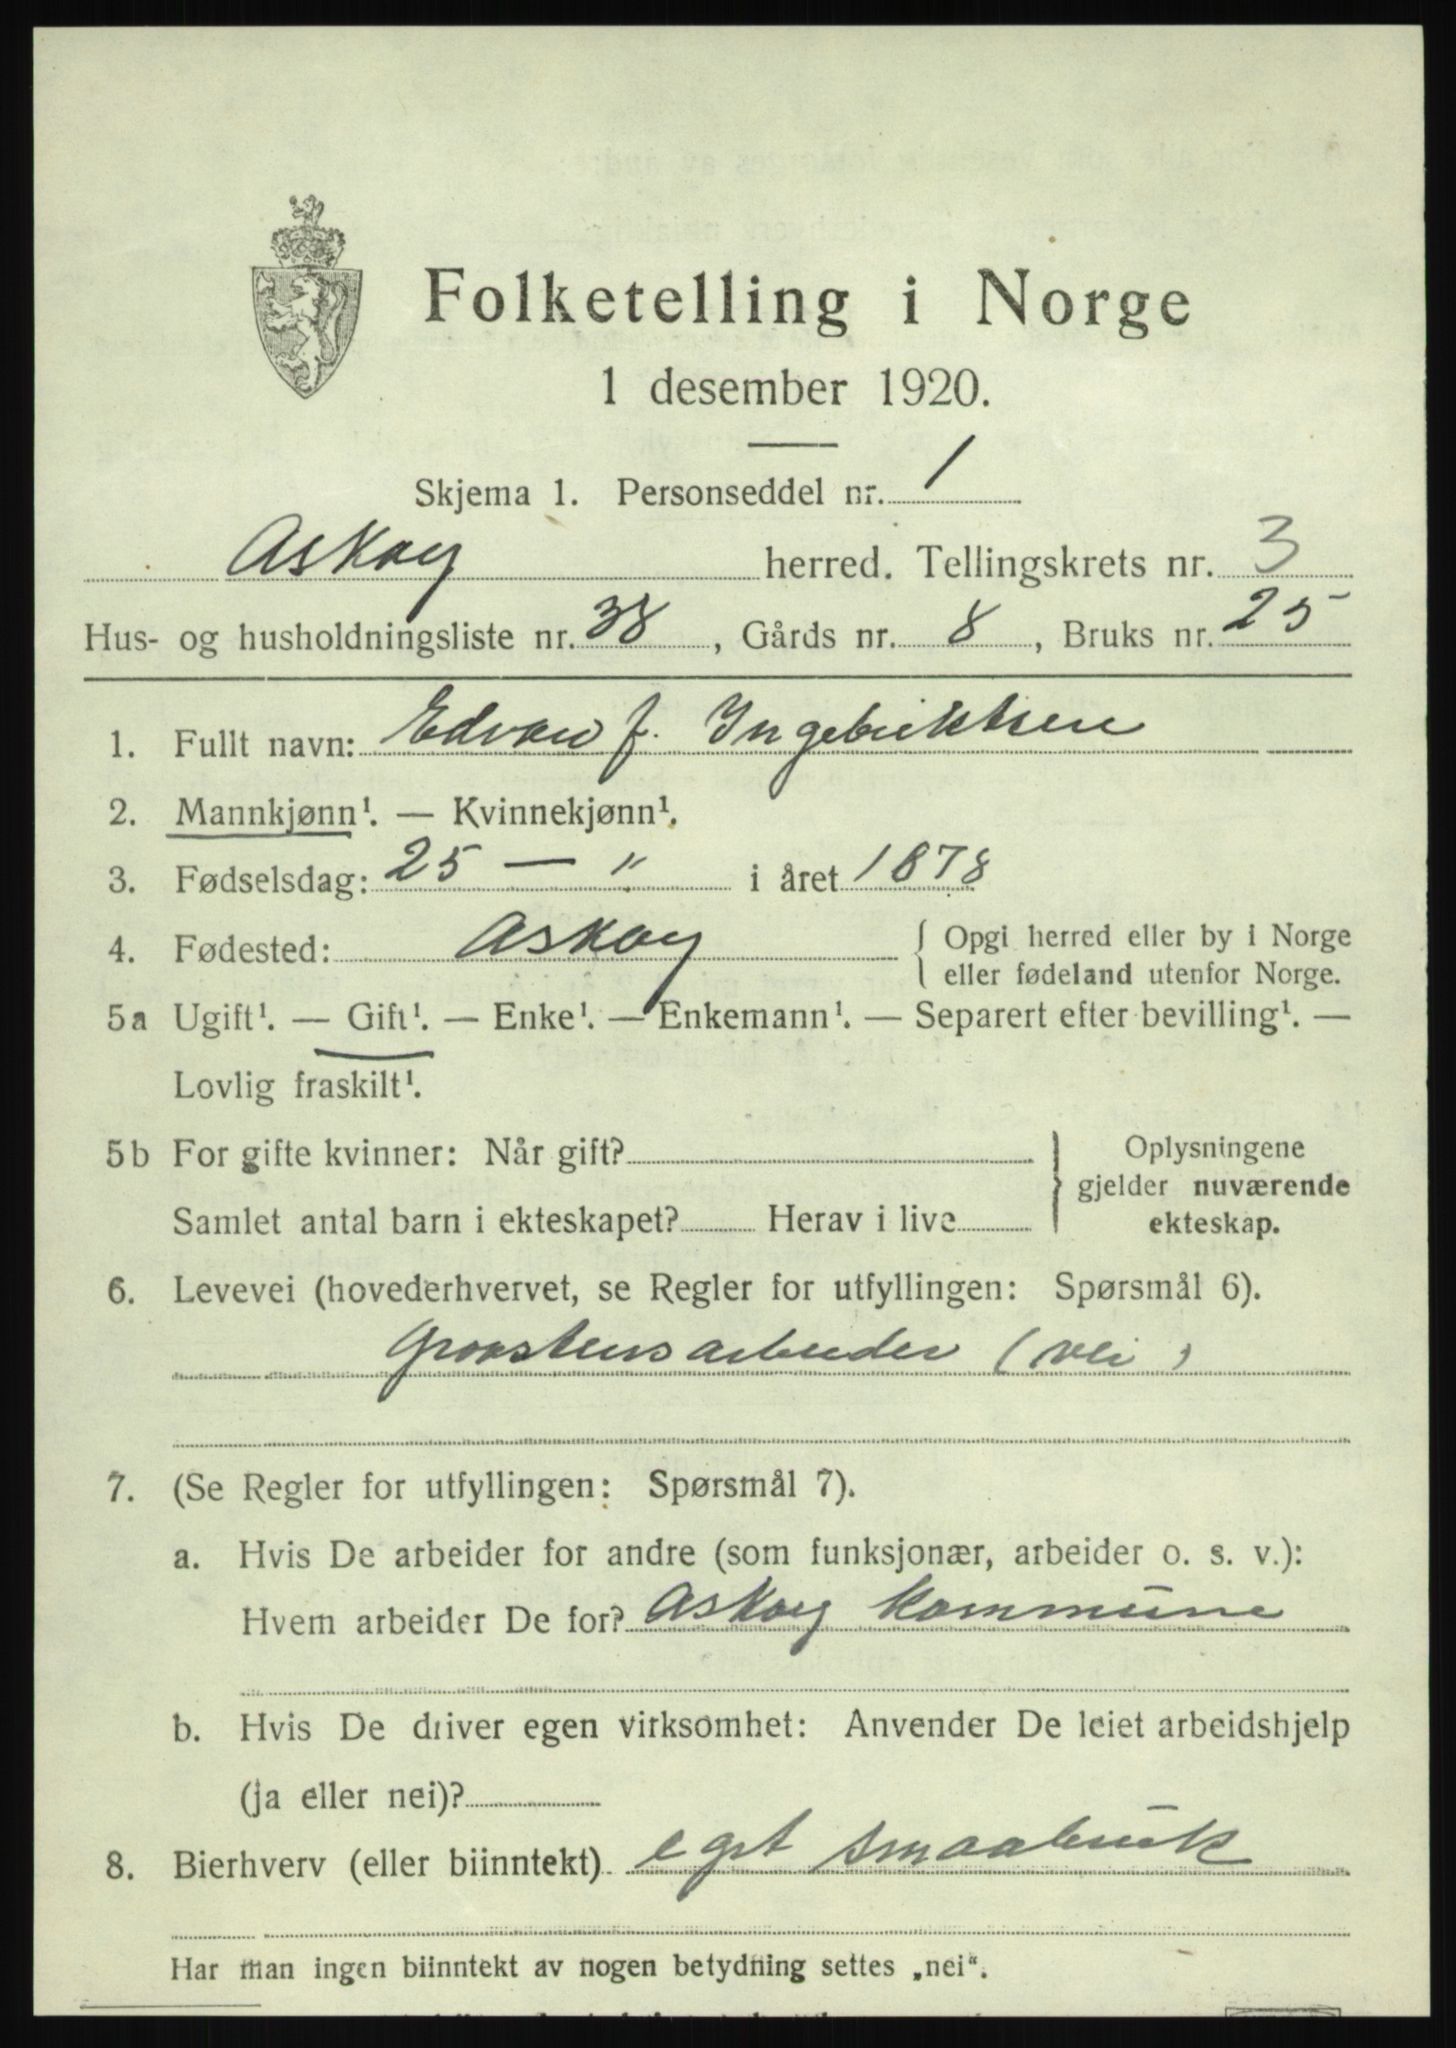 Folketelling i Norge
1 desember 1920.
Skjema 1. Personseddel nr. 1
Askøy herred. Tellingskrets nr. 3
Hus- og husholdningsliste nr. 38, Gårds nr. 8, Bruks nr. 25
1. Fullt navn: Edvard J. Ingebriktsen
2. Mannkjønn¹. — Kvinnekjønn¹.
3. Fødselsdag: 25 — " i året 1878
4. Fødested: Askøy { Opgi herred eller by i Norge
eller fødeland utenfor Norge.
5a Ugift¹. — Gift¹. — Enke¹. — Enkemann¹. — Separert efter bevilling¹. —
Lovlig fraskilt¹.
5b For gifte kvinner: Når gift? } Oplysningene
gjelder nuværende
Samlet antal barn i ekteskapet? Herav i live ekteskap.
6. Levevei (hovederhvervet, se Regler for utfyllingen: Spørsmål 6).
graastensarbeider (vei)
7. (Se Regler for utfyllingen: Spørsmål 7).
a. Hvis De arbeider for andre (som funksjonær, arbeider o. s. v.):
Hvem arbeider De for? Askøy kommune
b. Hvis De driver egen virksomhet: Anvender De leiet arbeidshjelp
(ja eller nei)?
8. Bierhverv (eller biinntekt) eget smaabruk
Har man ingen biinntekt av nogen betydning settes „nei“.